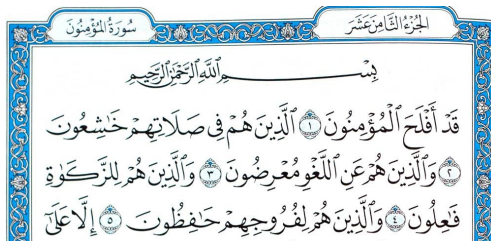 الجُزْءُ الثَّامِنَ عَشَرَ
سُورَةُ المُؤْمِنُونَ
بِسْمِ اللَّهِ الرَّحْمَٰنِ الرَّحِيمِ
قَدْ أَفْلَحَ الْمُؤْمِنُونَ ١ الَّذِينَ هُمْ فِي صَلَاتِهِمْ خَٰشِعُونَ
٢ وَالَّذِينَ هُمْ عَنِ اللَّغْوِ مُعْرِضُونَ ٣ وَالَّذِينَ هُمْ لِلزَّكَوٰةِ
فَٰعِلُونَ ٤ وَالَّذِينَ هُمْ لِفُرُوجِهِمْ حَٰفِظُونَ ٥ إِلَّا عَلَىٰٓ